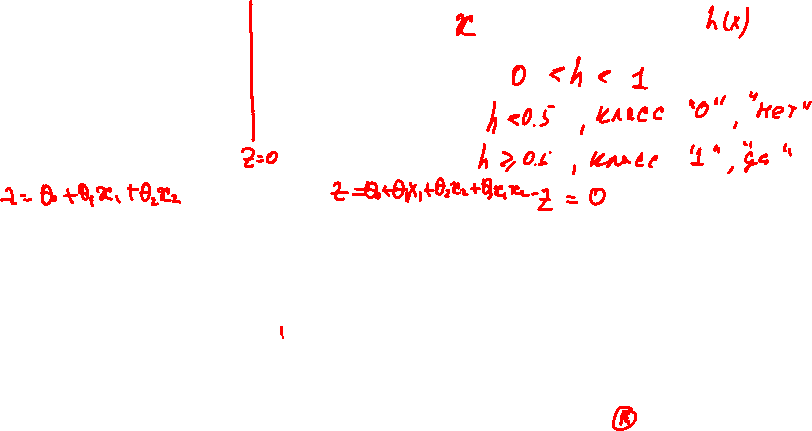 x h(x)
0 < h < 1
h < 0.5 , класс "0", "нет"
z=0
h ≥ 0.5 , класс "1", "да"
z = θ₀ + θ₁x₁ + θ₂x₂
z = θ₀ + θ₁x₁ + θ₂x₂ + θ₃x₁x₂ -
z = 0